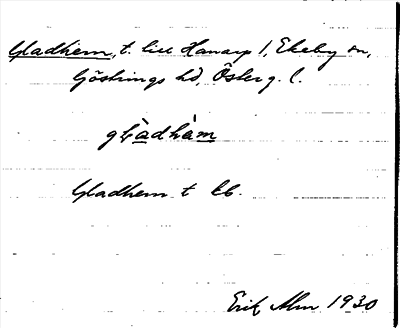 Gladhem, t. till Hanarp 1, Ekeby sn,
Göstrings hd, Österg. l.
glàdhàm
Gladhem t lb.
Erik Alm 1930